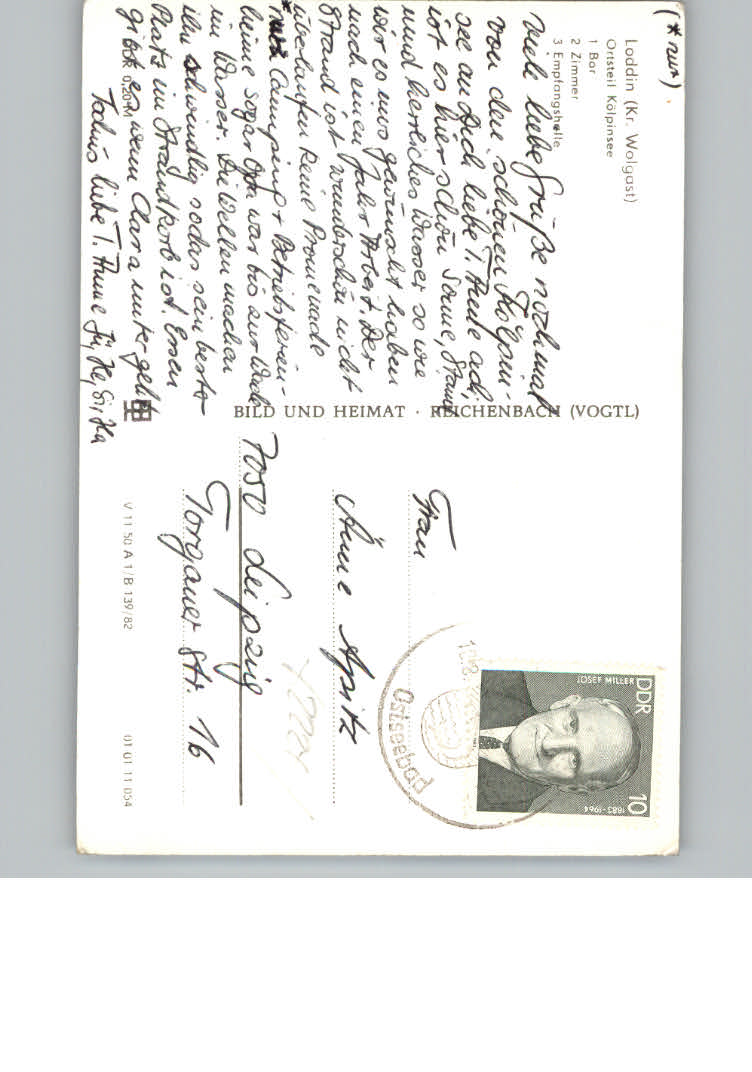 (* nur)
Loddin (Kr. Wolgast)
Ortsteil Kölpinsee
1 Bar
2 Zimmer
3 Empfangshalle
Viele liebe Grüße nochmal
von den schönen Kölpin-
see an dich liebe T. Änne
ist es hier schön Sonne,
und herrliches Wasser so wie
wir es uns gewünscht haben
nach einen Jahr Arbeit. Der
Strand ist wunderschön nicht
überlaufen keine Promenade
* Camping + Betriebsferien-
heime sogar Opa war bis zur Wade
im Wasser. Die Wellen machen
ihn schwindlig sodas sein bester
Platz im Strandkorb ist. Essen
gibt er wenn Clara untergeht
Tschüs liebe T. Änne Jü, He, Si, Ha
0,20 M
BILD UND HEIMAT · REICHENBACH (VOGTL)
V 11 50 A 1/B 139/82
01 01 11 054
Frau
Änne Apitz
7050 Leipzig
Torgauer Str. 16
Ostseebad
JOSEF MILLER
DDR
10
1883-1964